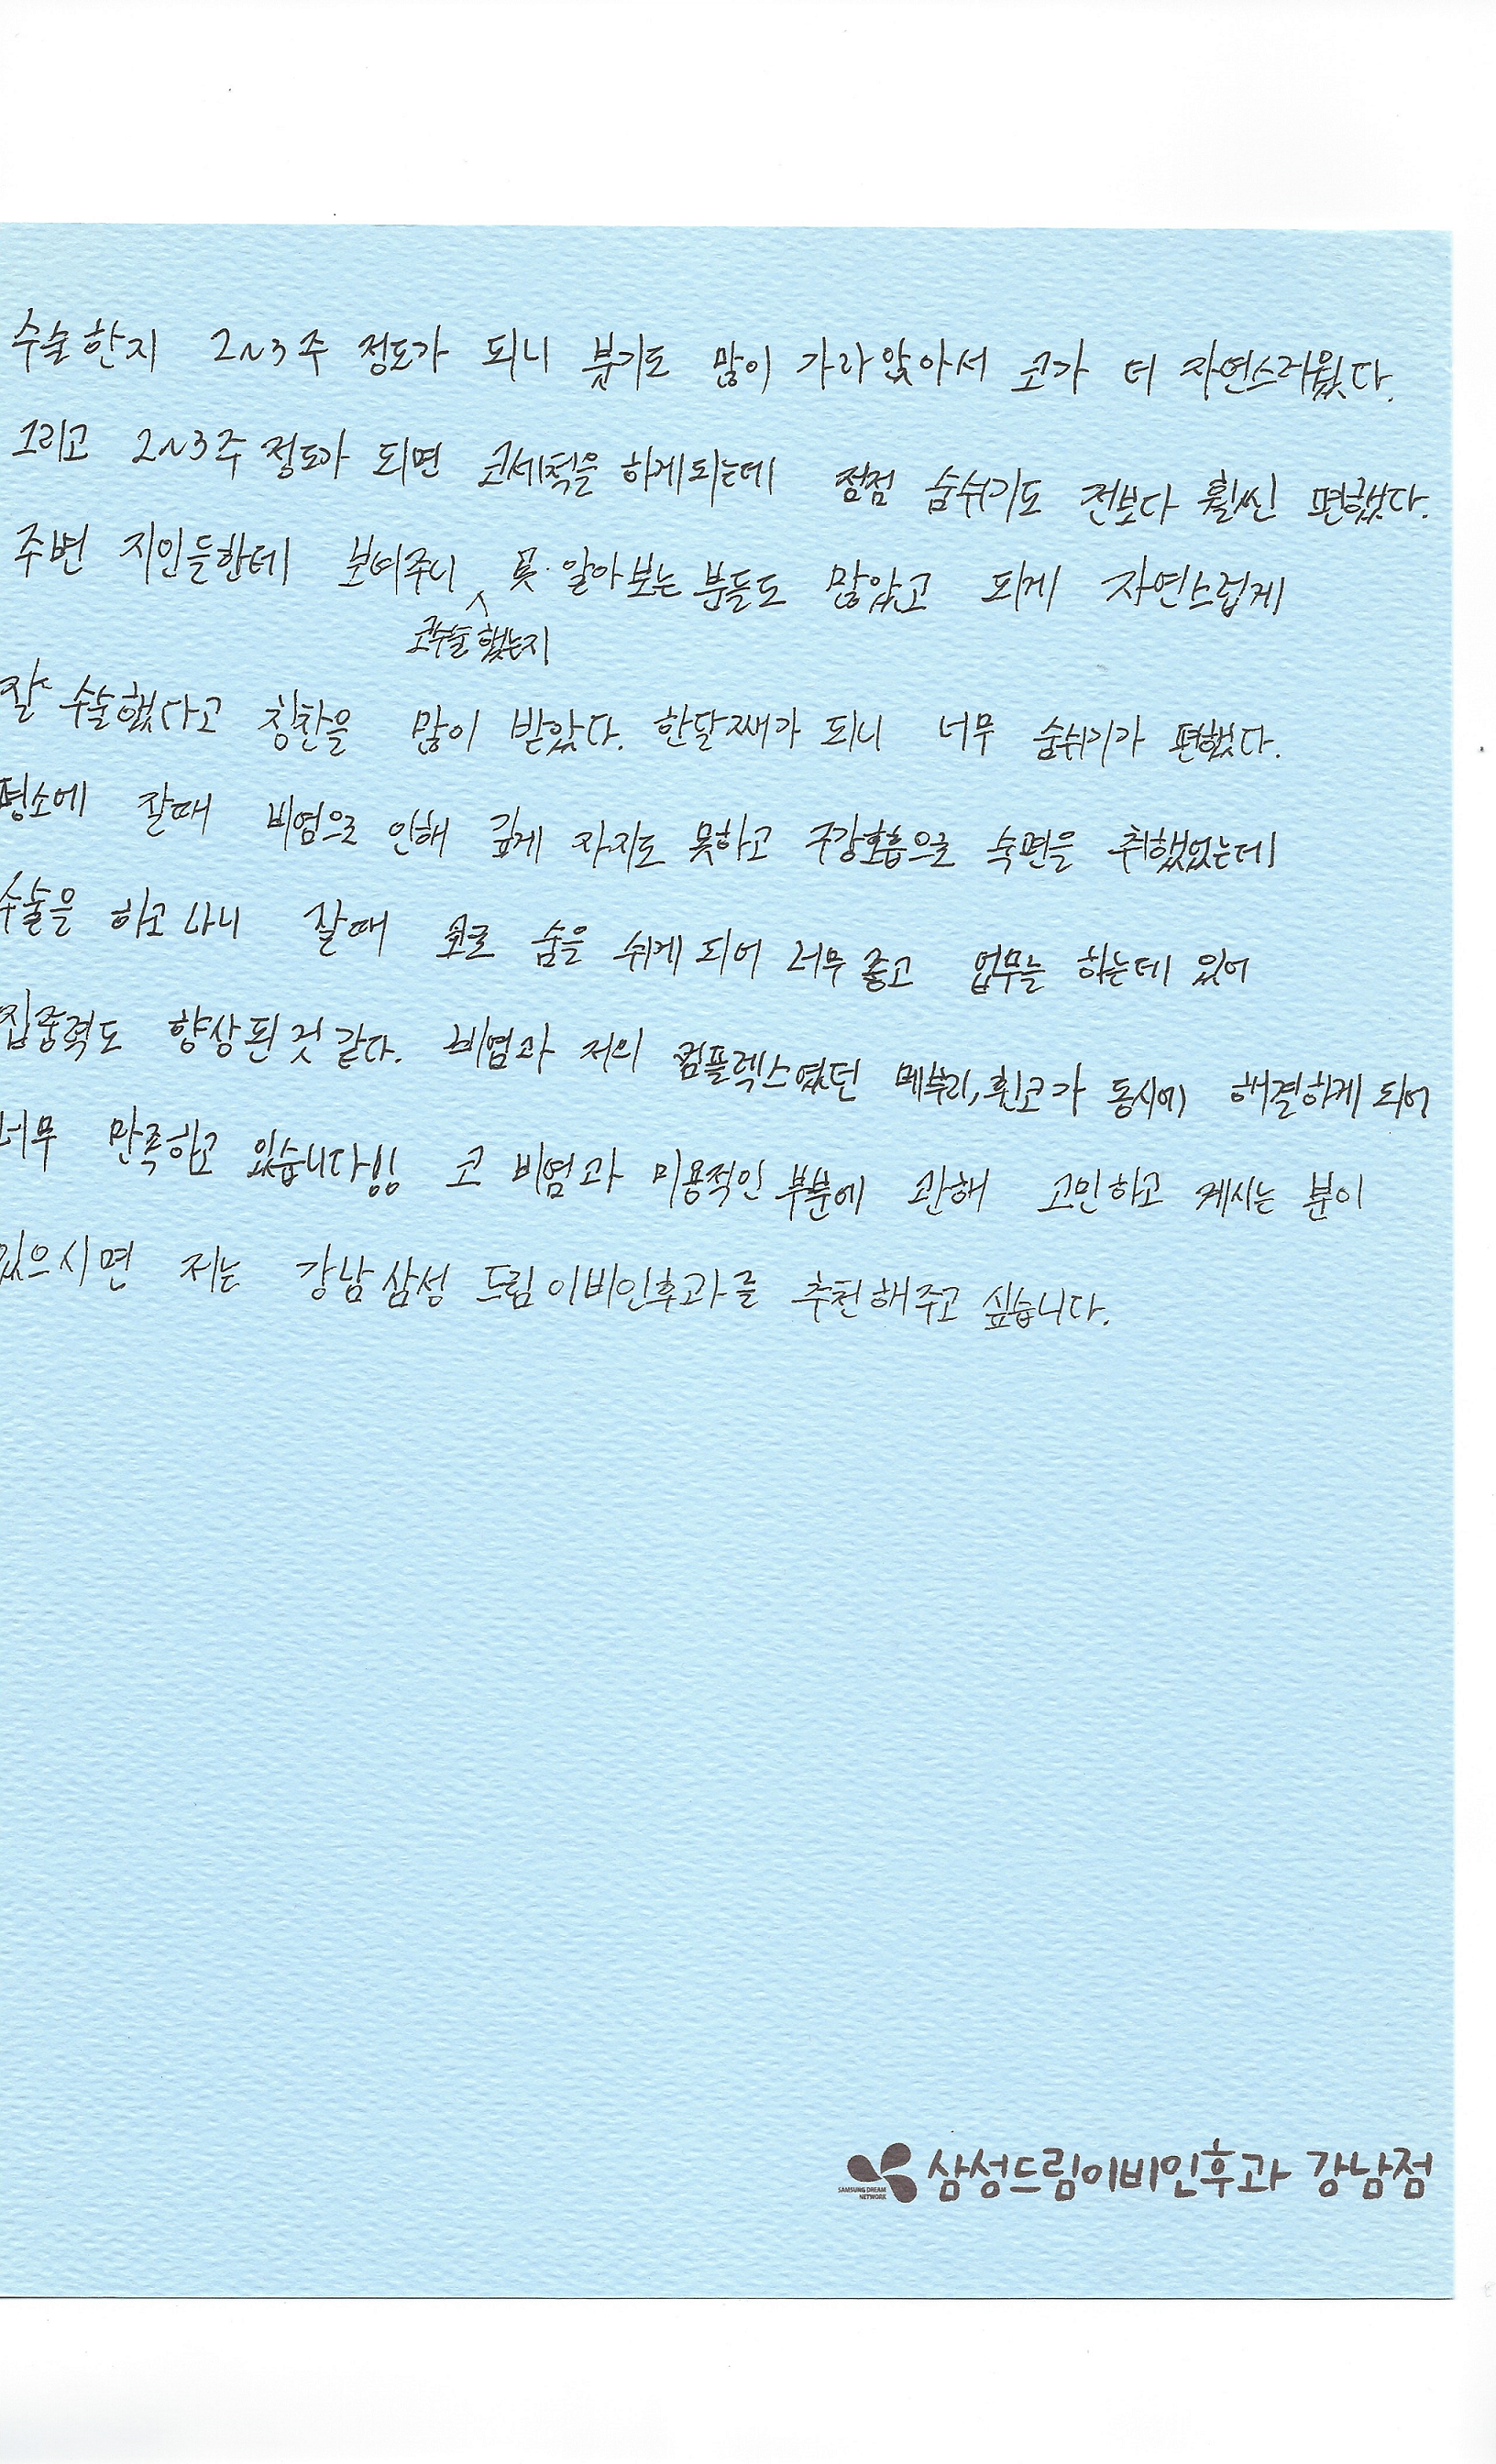 수술한지 2~3주 정도가 되니 붊기도 많이 가라앉아서 코가 더 자연스러웠다.
그리고 2~3주 정도가 되면 코세척을 하게되는데 점점 숨쉬기도 전보다 훨씬 편했다.
주변 지인들한테 보여주니 못 알아보는 분들도 많았고 되게 자연스럽게
코수술 했는지
잘 수술했다고 칭찬을 많이 받았다. 한달째가 되니 너무 숨쉬기가 편했다.
평소에 잘때 비염으로 인해 깊게 자지도 못하고 구강호흡으로 숙면을 취했었는데
수술을 하고나니 잘때 코로 숨을 쉬게 되어 너무 좋고 업무를 하는데 있어
집중력도 향상된것 같다. 비염과 저의 컴플렉스였던 메부리, 휜코가 동시에 해결하게 되어
너무 만족하고 있습니다!! 코 비염과 미용적인 부분에 관해 고민하고 계시는 분이
있으시면 저는 강남삼성 드림이비인후과를 추천해주고 싶습니다.
삼성드림이비인후과 강남점
SAMSUNG DREAM
NETWORK